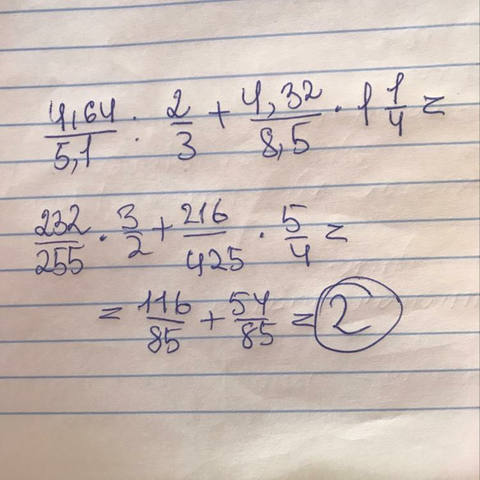 4,64/5,1 : 2/3 + 4,32/8,5 · 1 1/4 =
232/255 · 3/2 + 216/425 · 5/4 =
= 116/85 + 54/85 = 2